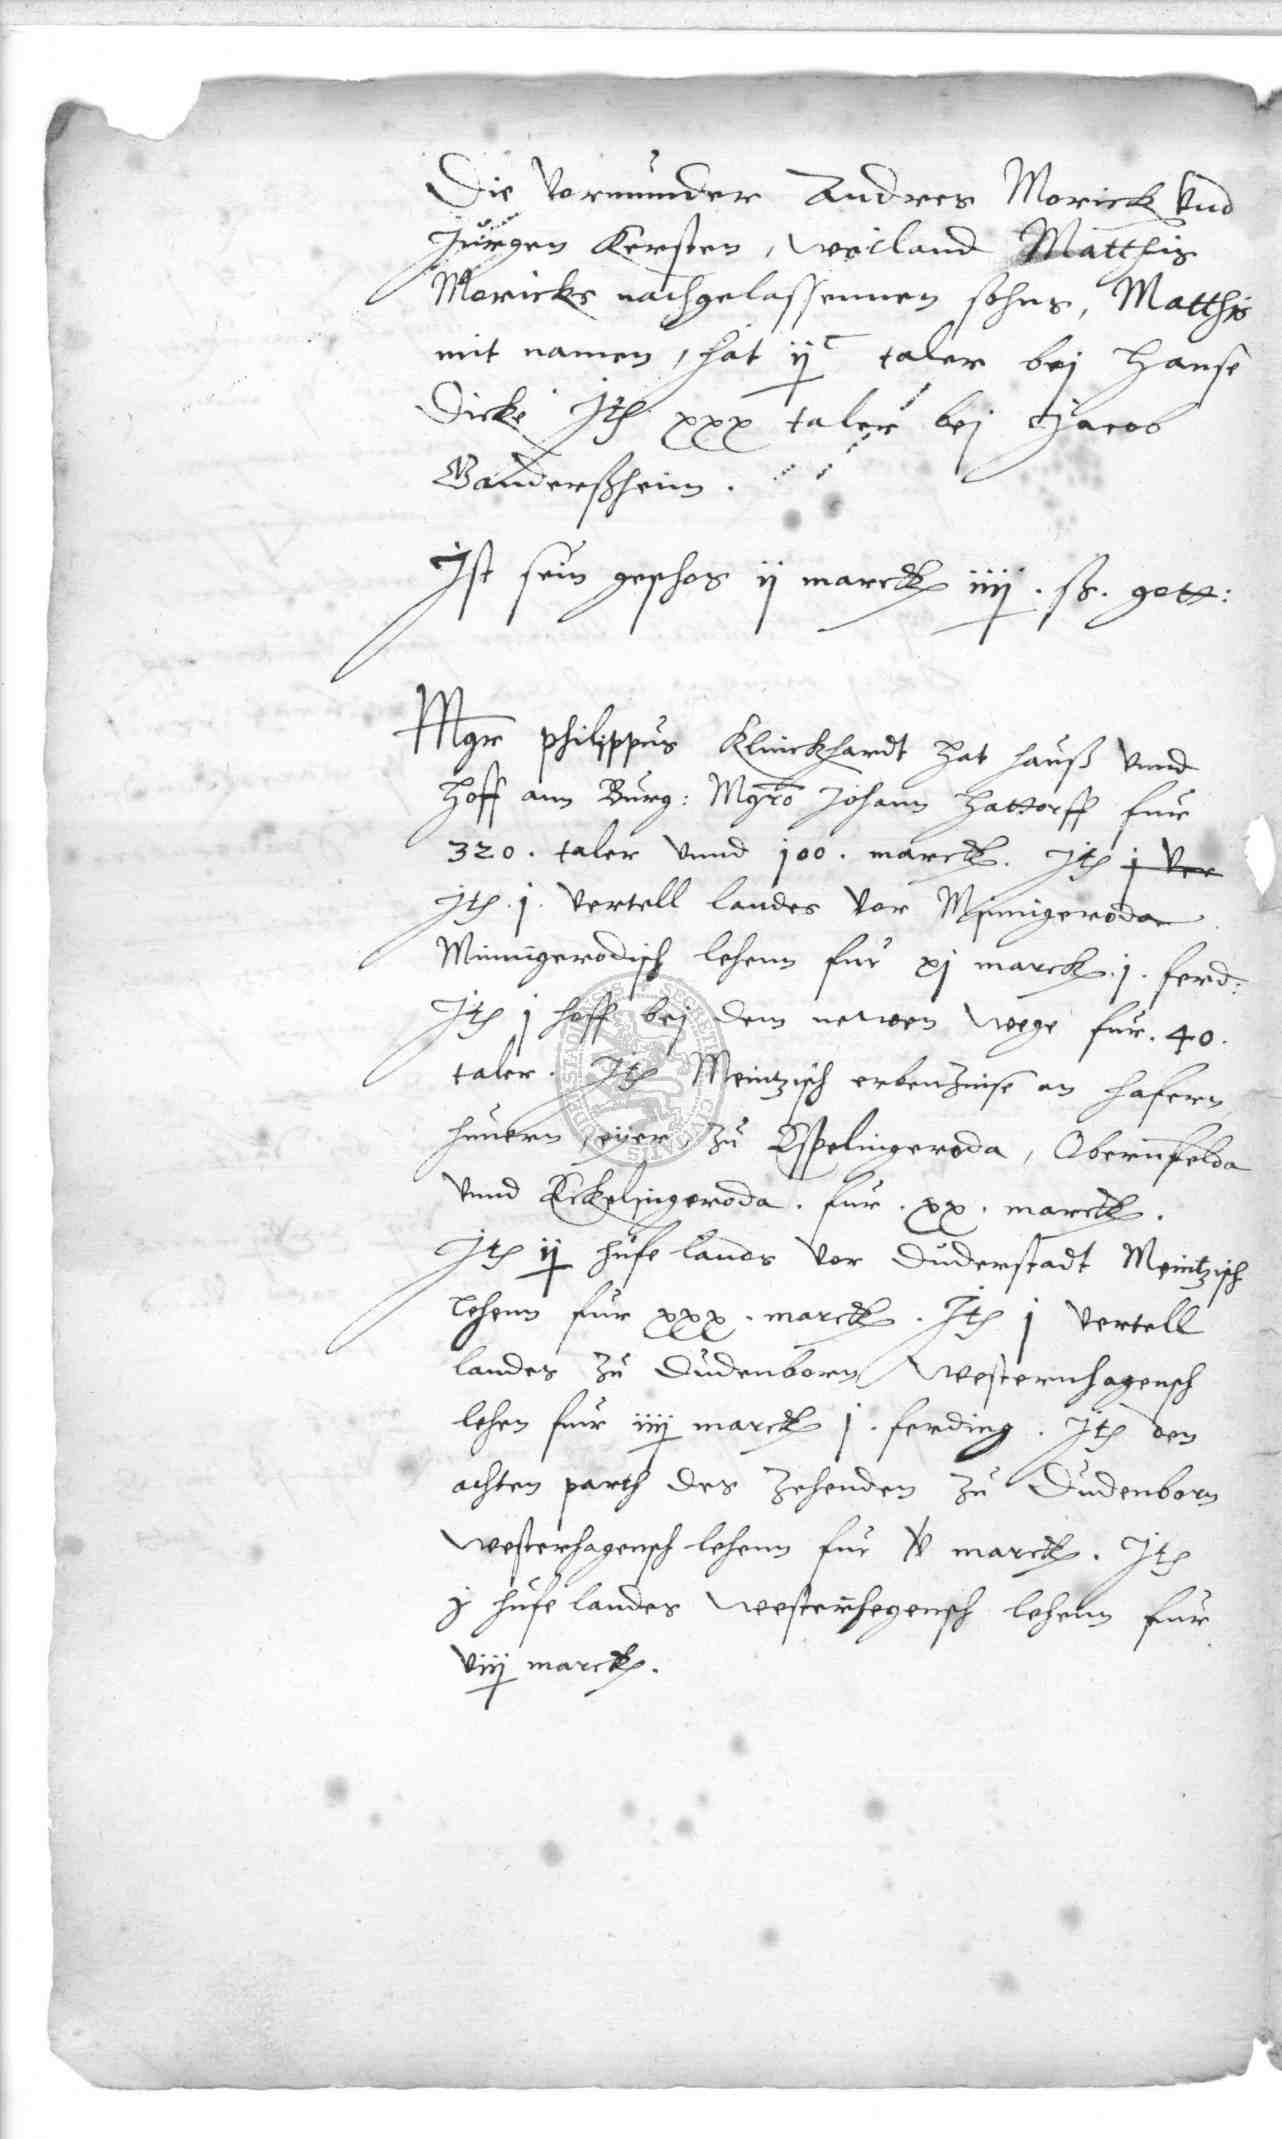 Die Vormunder Andres Morick Vnd
Jurgen Kersten, weiland Matthis
Moricks nachgelassennen sohns, Matthis
mit namen, hat ij c taler bej Hanse
Dicke Jtem xxx taler bej Jacob
Ganderßheim.
Jst sein geschos ij marck iiij . ß. gott:
Mgr Philippus Klinckhardt hat hauß vnnd
Hoff ann Burg: Mgro Johann Hattorff fur
320. taler vnnd 100. marck. Jtem j ver
Jtem .j. vertell landes vor Minnigeroda
Minnigerodisch lehenn fur xj marck .j. ferd:
Jtem j hoff bej dem newen wege fur. 40.
taler. Jtem Meintzisch erbenzinse an hafern
hunern, eijer, zu Espelingeroda, Obernfelda
vnnd Eckelingeroda. fur. xx. marck.
Jtem ij hufe lands vor Duderstadt Meintzisch
lehenn fur xxx. marck. Jtem j vertell
landes zu Dudenborn Westernhagensch
lehen fur iiij marck j. ferding. Jtem den
achten parth des zehenden zu Dudenborn
Westerhagensch lehenn fur v marck. Jtem
j hufe landes Westerhegensch lehenn fur
viij marck.